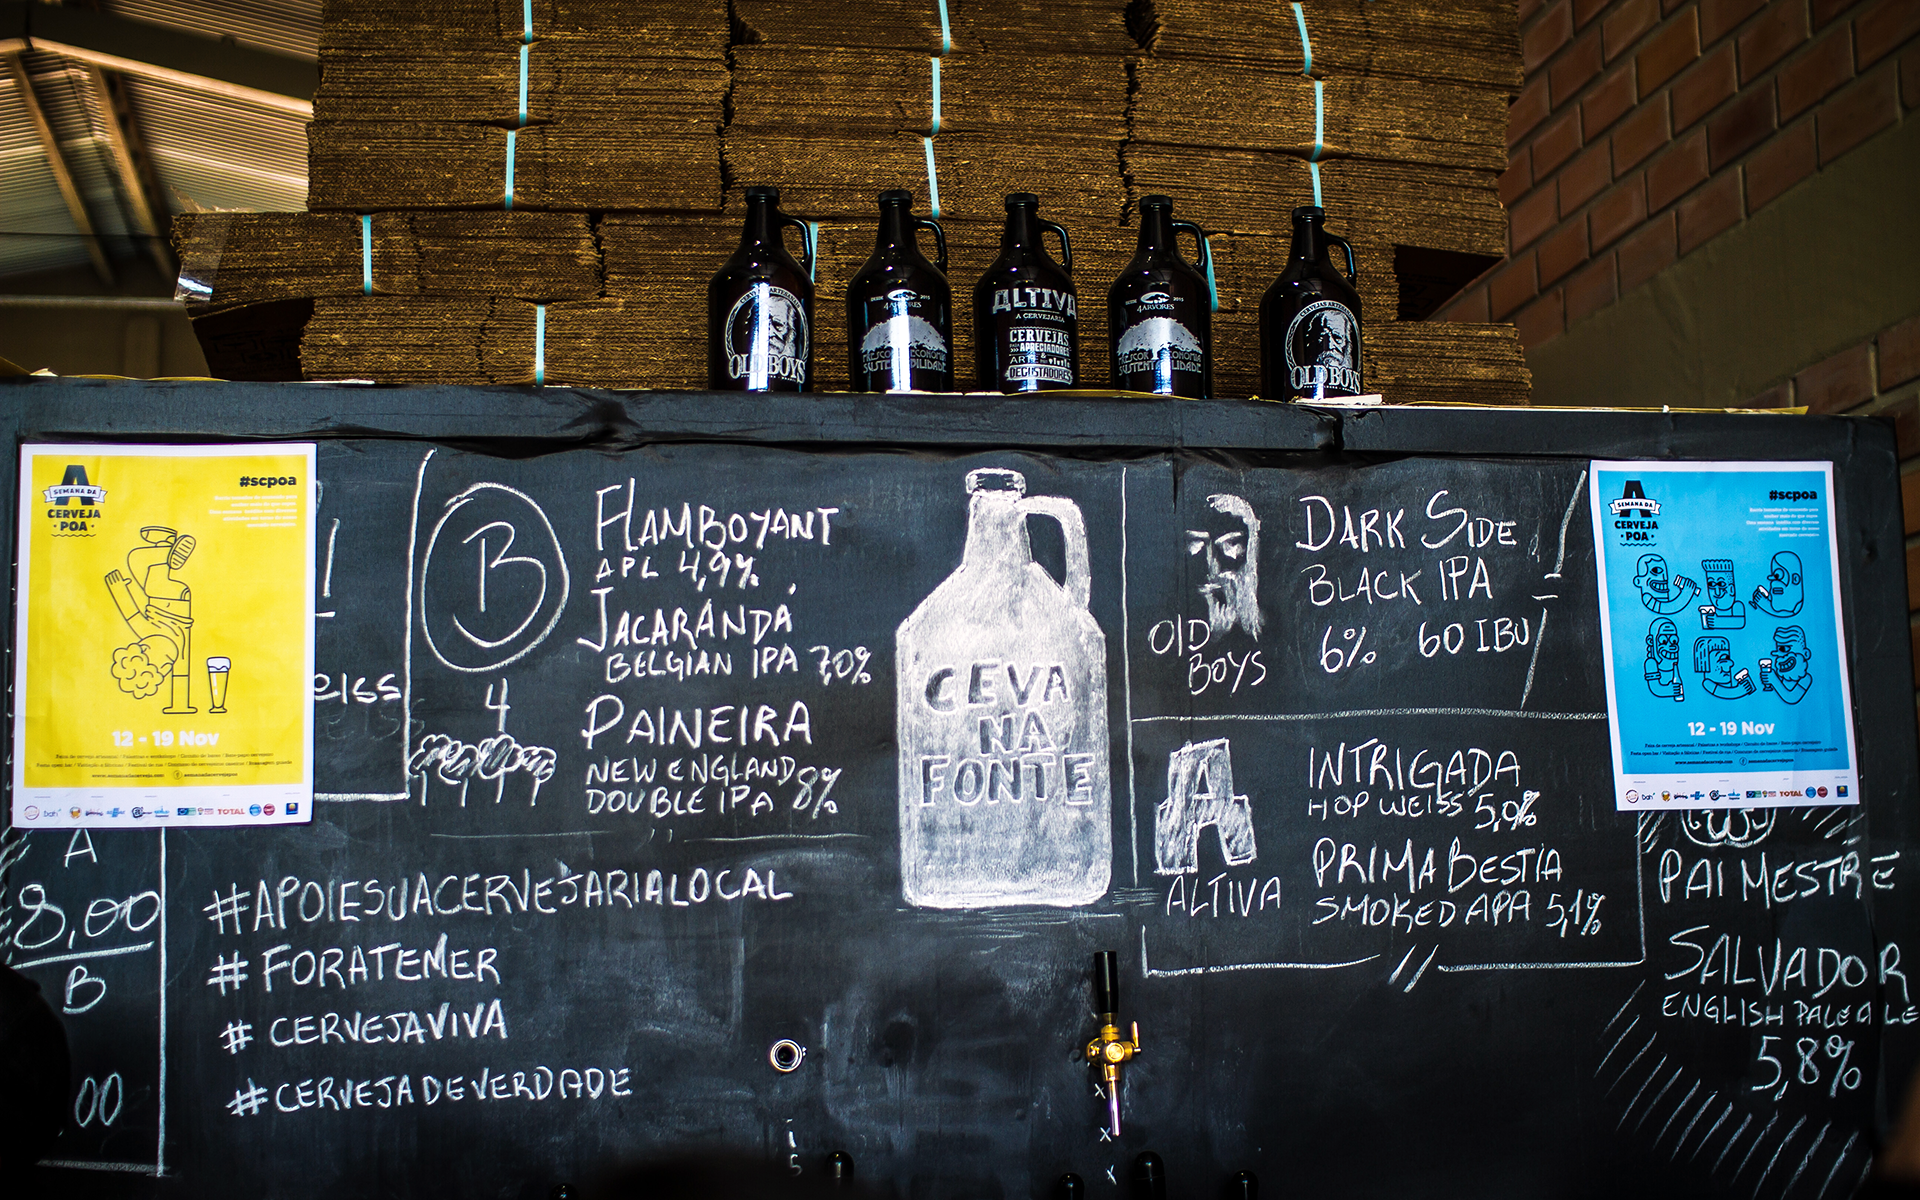 OLD BOYS
DESDE 2015
4 ARVORES
ALTIVA
A CERVEJARIA
CERVEJAS
PARA APRECIADORES
ARTE
DEGUSTADORES
DESDE 2015
4 ARVORES
SUSTENTABILIDADE
OLD BOYS
A
SEMANA DA
CERVEJA
POA
#scpoa
12 - 19 Nov
www.semanadacerveja.com
TOTAL
eiss
A
8,00
B
00
B
FLAMBOYANT
APL 4,9%
JACARANDÁ
BELGIAN IPA 7,0%
4
PAINEIRA
NEW ENGLAND
DOUBLE IPA 8%
#APOIESUACERVEJARIALOCAL
#FORATEMER
#CERVEJAVIVA
#CERVEJADEVERDADE
CEVA
NA
FONTE
OLD
BOYS
DARK SIDE
BLACK IPA
6% 60 IBU
A
ALTIVA
INTRIGADA
HOP WEISS 5,0%
PRIMA BESTIA
SMOKED APA 5,1%
A
SEMANA DA
CERVEJA
POA
#scpoa
12 - 19 Nov
TOTAL
PAI MESTRE
SALVADOR
ENGLISH PALE ALE
5,8%